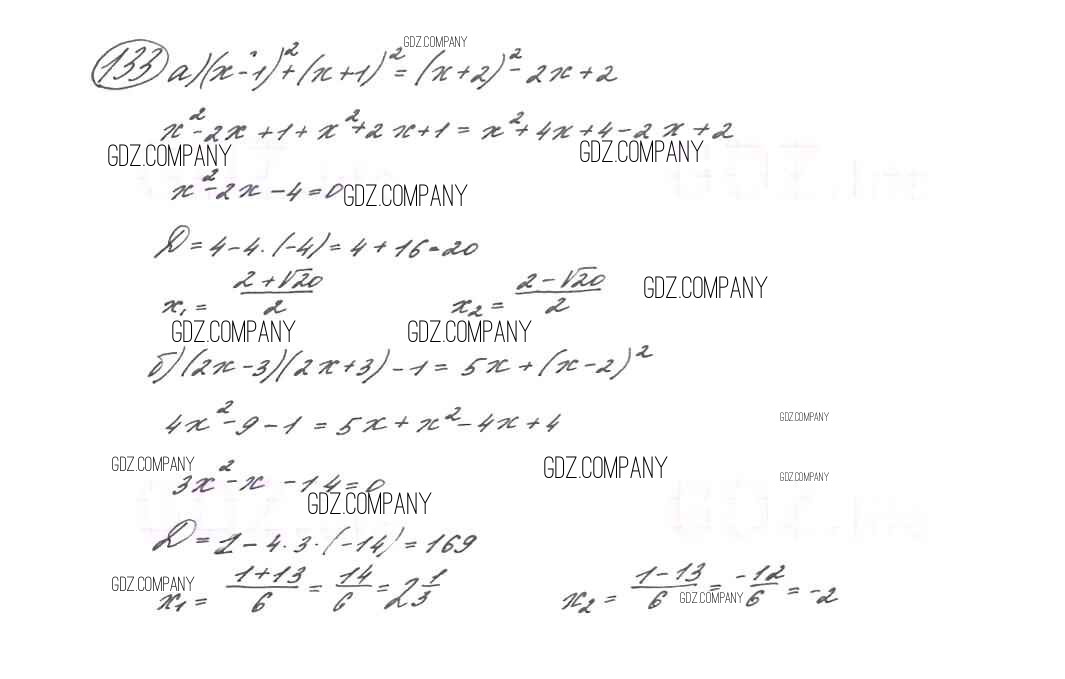 GDZ.COMPANY
133 а) (x-1)² + (x+1)² = (x+2)² - 2x + 2
x² - 2x + 1 + x² + 2x + 1 = x² + 4x + 4 - 2x + 2
GDZ.COMPANY GDZ.COMPANY
x² - 2x - 4 = 0 GDZ.COMPANY
D = 4 - 4·(-4) = 4 + 16 = 20
x₁ = (2+√20)/2 x₂ = (2-√20)/2 GDZ.COMPANY
GDZ.COMPANY GDZ.COMPANY
б) (2x-3)(2x+3) - 1 = 5x + (x-2)²
4x² - 9 - 1 = 5x + x² - 4x + 4 GDZ.COMPANY
GDZ.COMPANY GDZ.COMPANY GDZ.COMPANY
3x² - x - 14 = 0
GDZ.COMPANY
D = 1 - 4·3·(-14) = 169
GDZ.COMPANY
x₁ = (1+13)/6 = 14/6 = 2 1/3 x₂ = (1-13)/6 = -12/6 = -2
GDZ.COMPANY